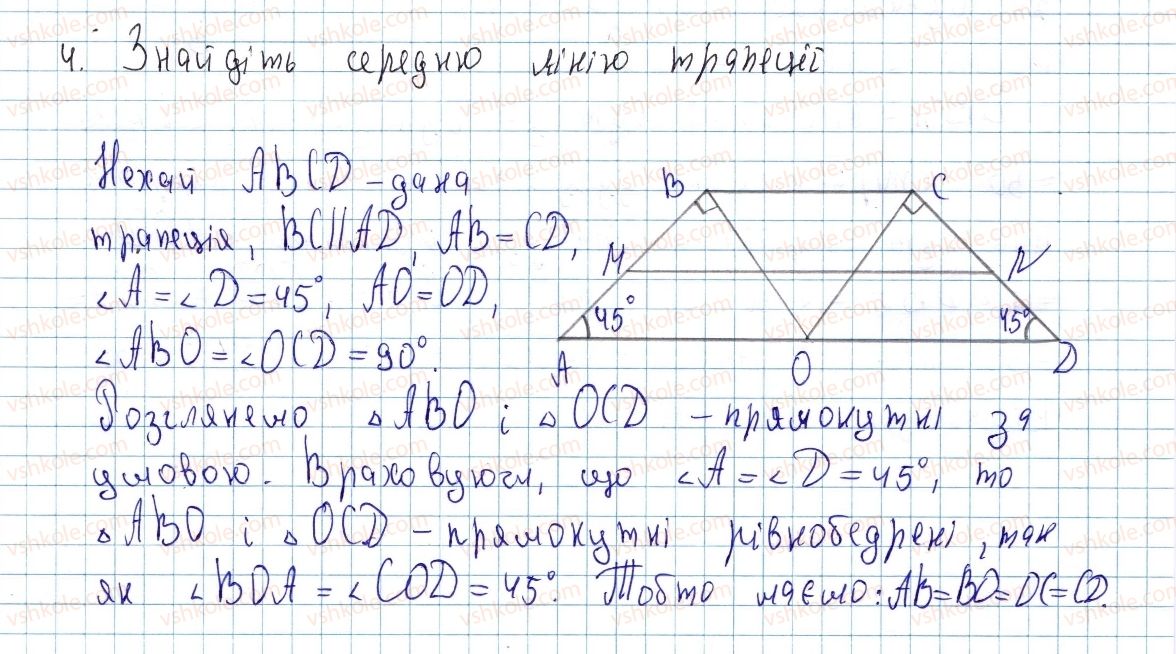 4. Знайдіть середню лінію трапеції
Нехай ABCD – дана
трапеція, BC||AD, AB = CD,
∠A = ∠D = 45°, AO = OD,
∠ABO = ∠OCD = 90°.
B C
M N
45° 45°
A O D
Розглянемо △ABO і △OCD – прямокутні за
умовою. Враховуючи, що ∠A = ∠D = 45°, то
△ABO і △OCD – прямокутні рівнобедрені, так
як ∠BOA = ∠COD = 45°. Тобто маємо: AB = BO = OC = CD.
vshkole.com